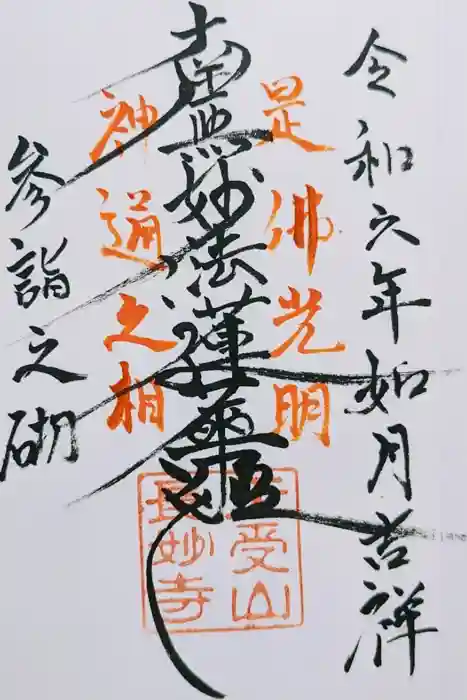 令和六年如月吉祥
是佛光明
南無妙法蓮華経
神通之相
参詣之砌
受山
長妙寺